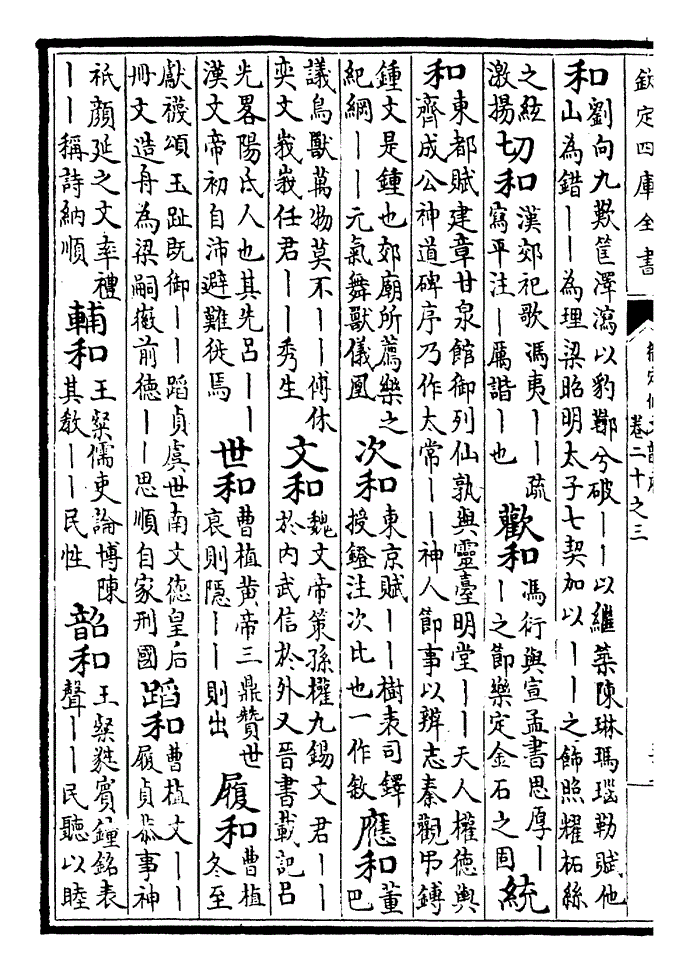 欽定四庫全書
卷二十之三
和
劉向九歎筐澤瀉以豹鞹兮破——以繼築陳琳瑪瑙勒賦他
山為錯——為理梁昭明太子七契加以——之飾照耀柘絲
之絃
激揚
切和
漢郊祀歌馮夷——疏
寫平注—厲諧—也
歡和
馮衍與宣孟書思厚—
—之節樂定金石之固
統
和
東都賦建章甘泉館御列仙孰與靈臺明堂——天人權德輿
齊成公神道碑序乃作太常——神人節事以辨志秦觀弔鎛
鍾文是鍾也郊廟所薦樂之
紀綱——元氣舞獸儀凰
次和
東京賦——樹表司鐸
授鐙注次比也一作敘
應和
董
巴
議鳥獸萬物莫不——傅休
奕文峩峩任君——秀生
文和
魏文帝策孫權九錫文君——
於內武信於外又晉書載記呂
先畧陽氐人也其先呂——
漢文帝初自沛避難徙焉
世和
曹植黃帝三鼎贊世
哀則隱——則出
履和
曹植
冬至
獻襪頌玉趾既御——蹈貞虞世南文德皇后
冊文造舟為梁嗣徽前德——思順自家刑國
蹈和
曹植文——
履貞恭事神
祇顏延之文率禮
——稱詩納順
輔和
王粲儒吏論博陳
其教——民性
韶和
王粲蕤賓鍾銘表
聲——民聽以睦